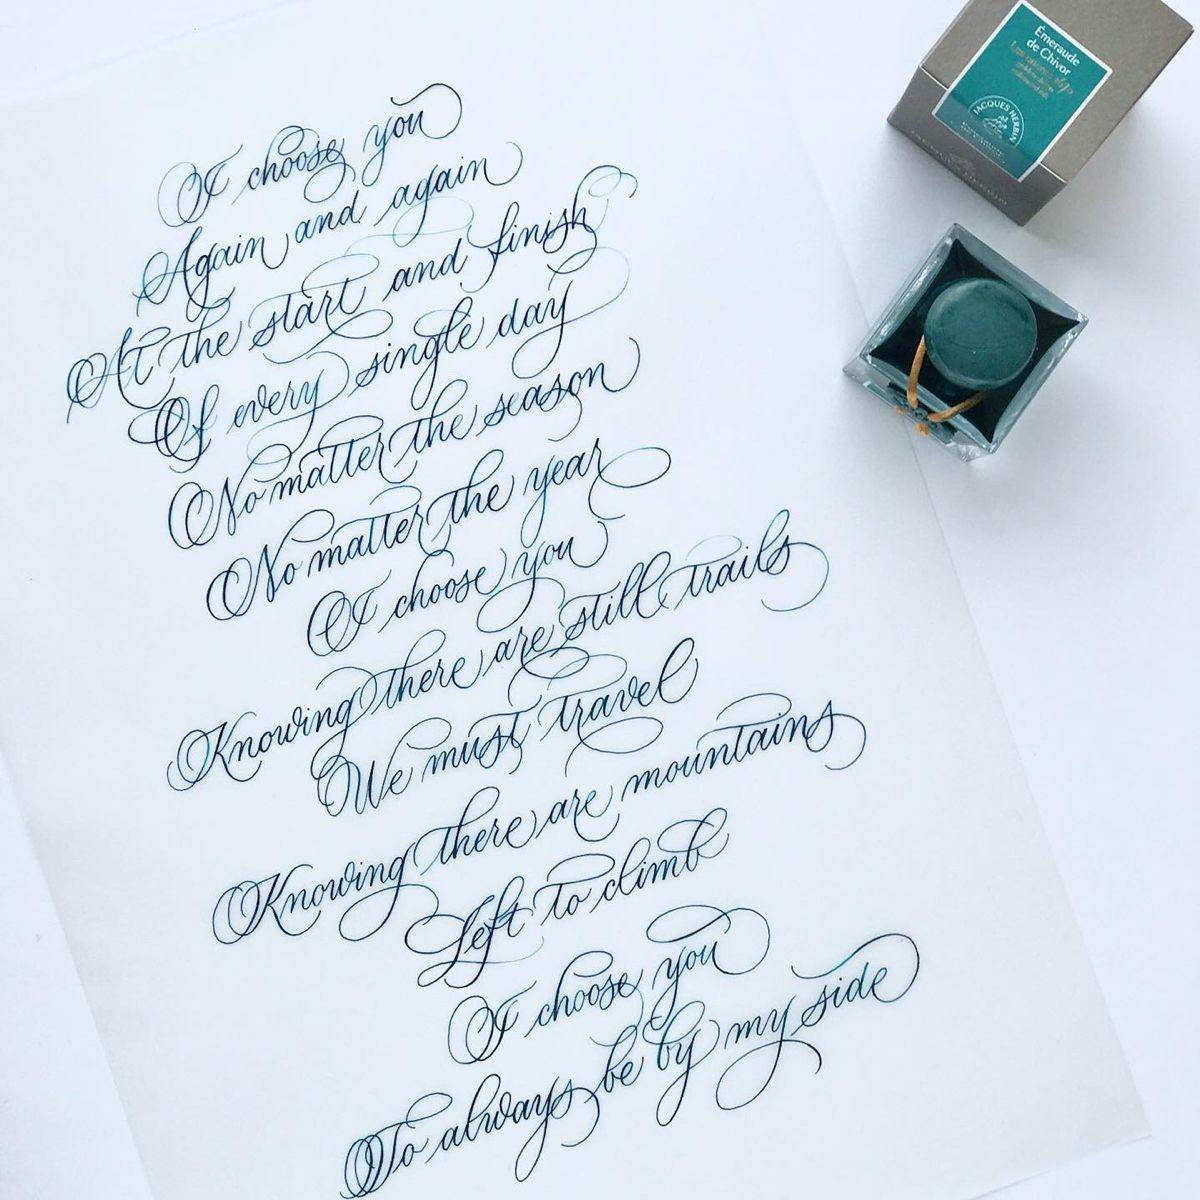 I choose you
Again and again
At the start and finish
Of every single day
No matter the season
No matter the year
I choose you
Knowing there are still trails
We must travel
Knowing there are mountains
Left to climb
I choose you
To always be by my side
Émeraude
de Chivor
JACQUES HERBIN